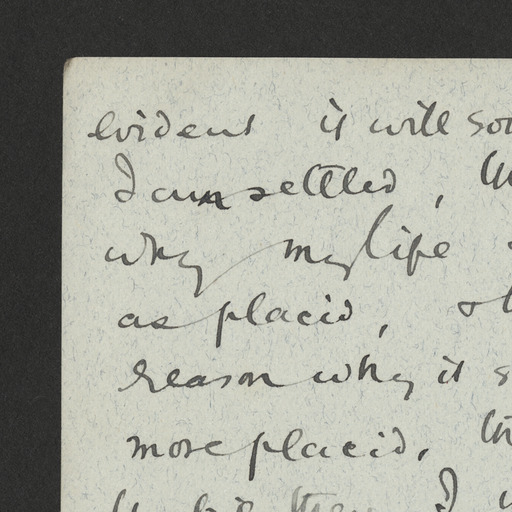 evident it will
I am settled,
why my life
as placid,
reason why it
more placid.
then I